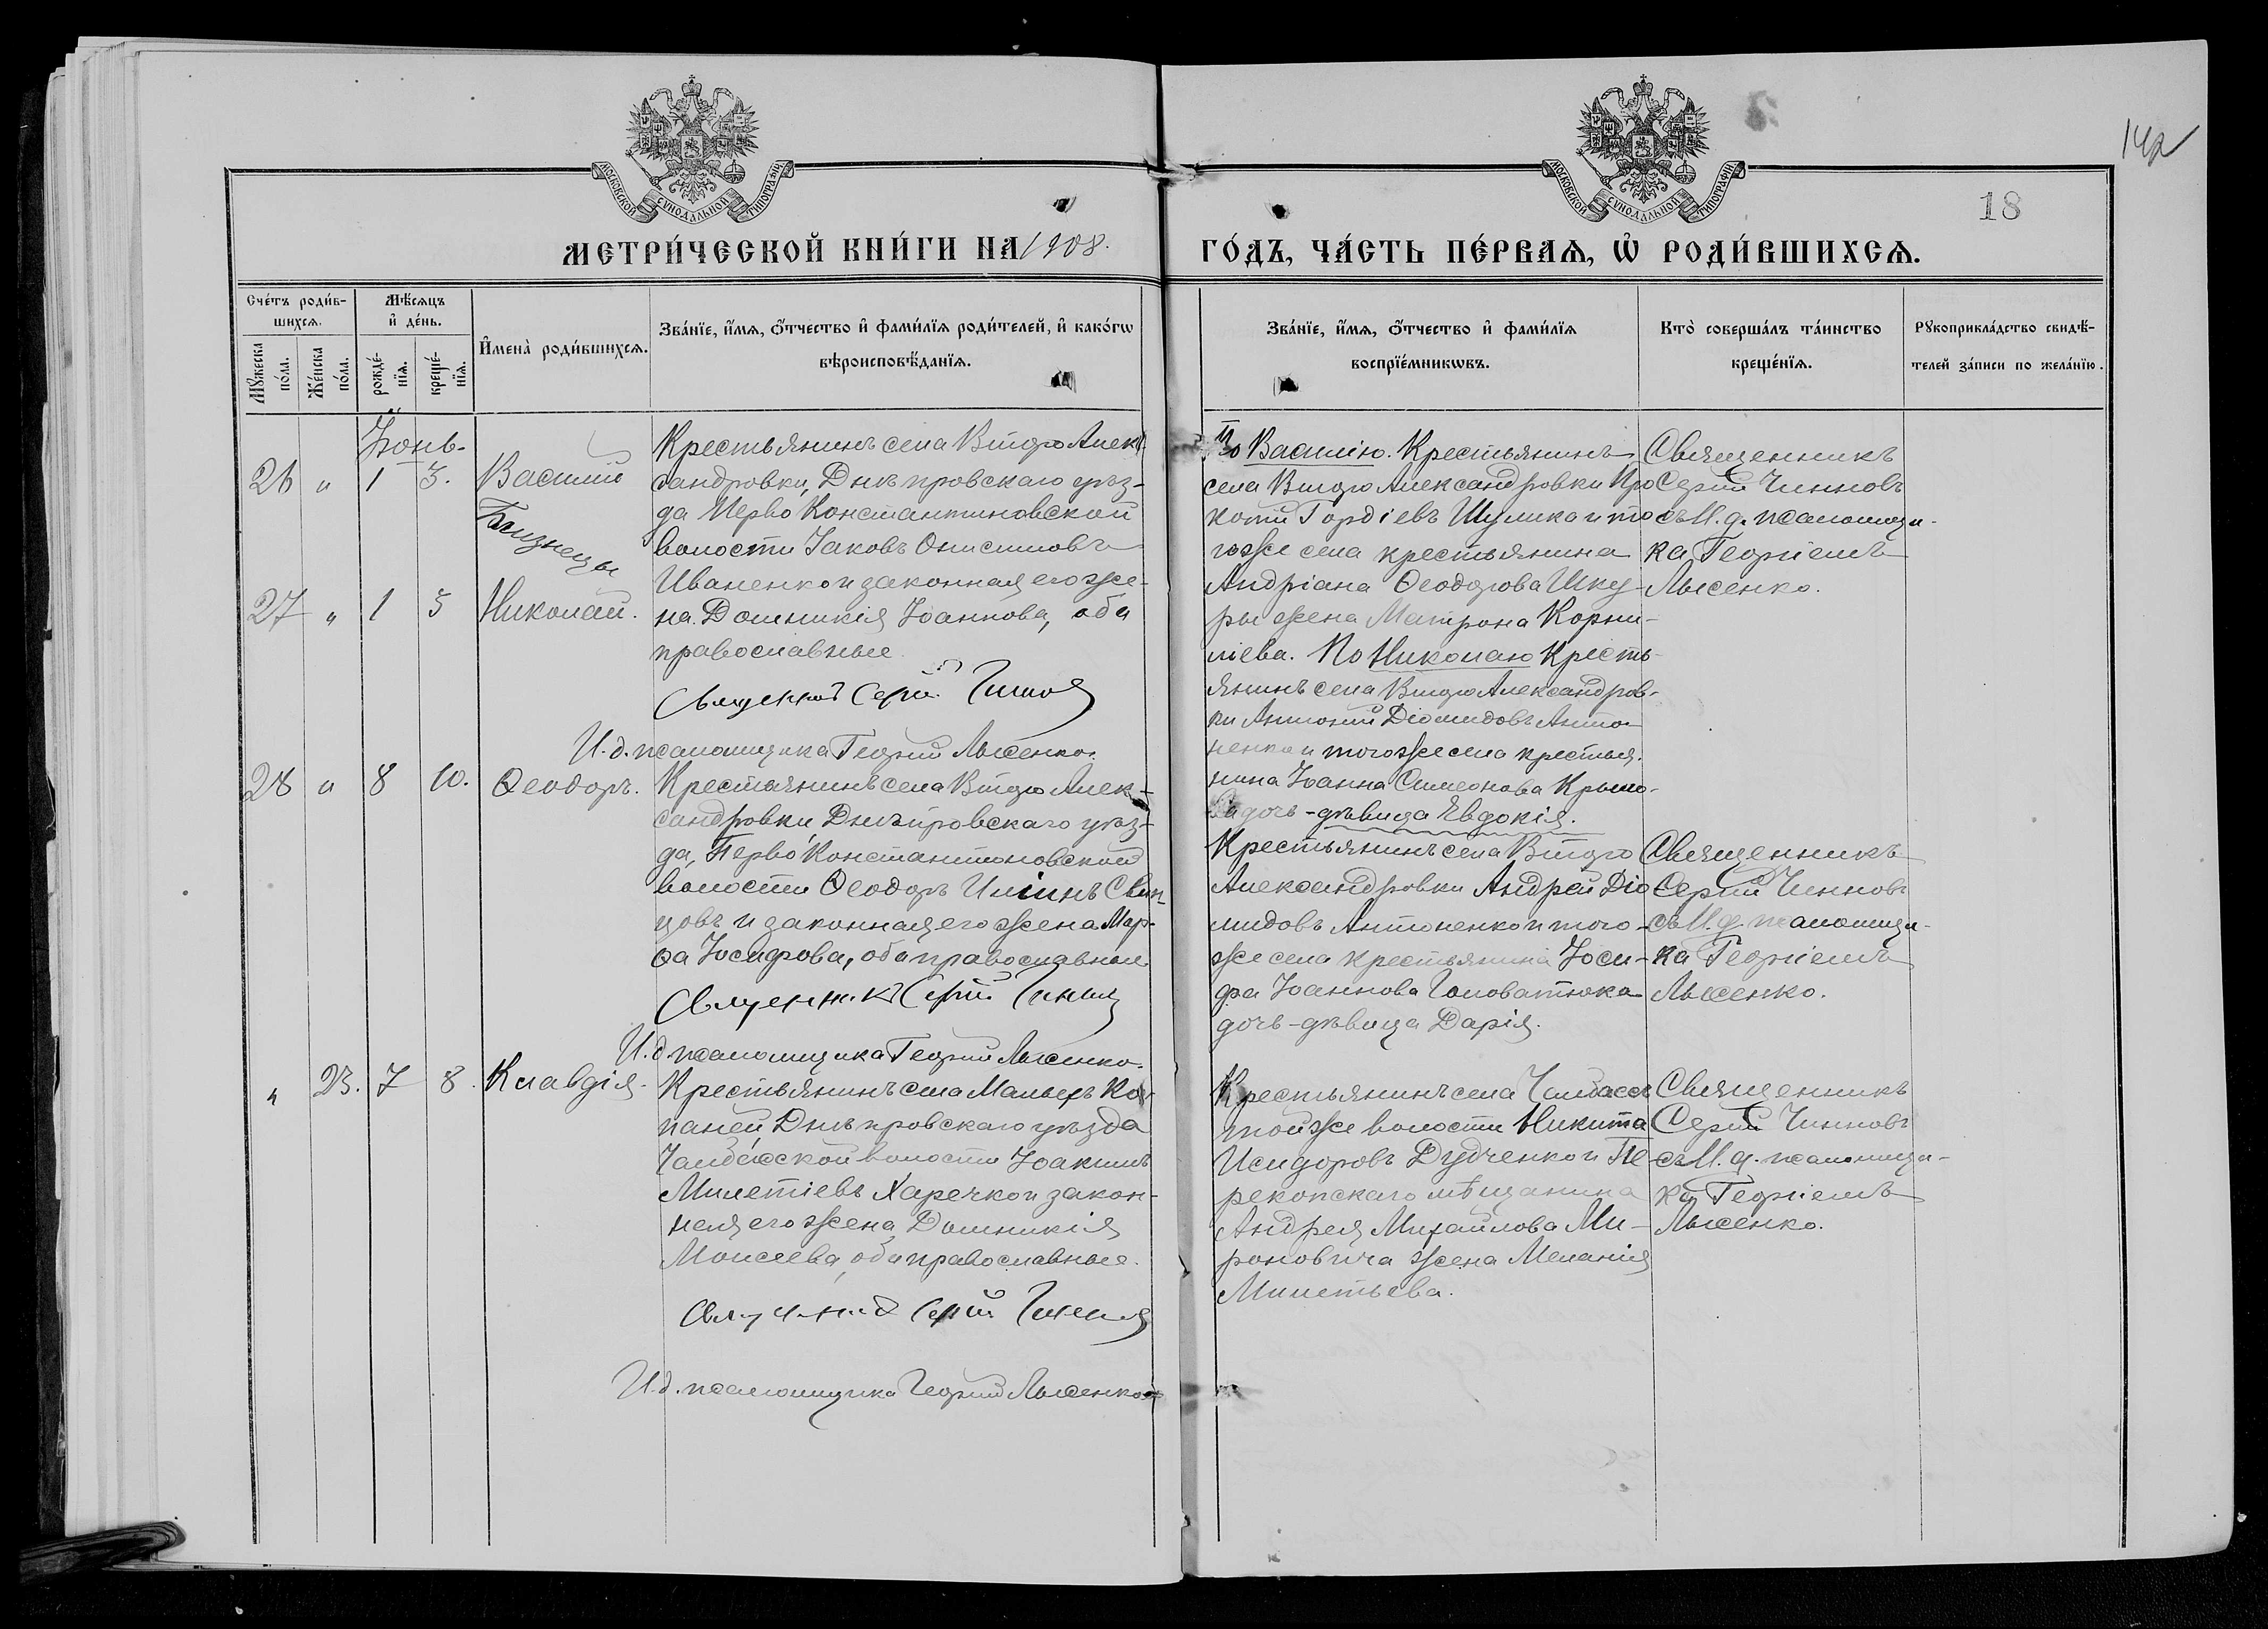 142
18
МОСКОВСКОЙ СѴНОДАЛЬНОЙ ТИПОГРАФІИ
МОСКОВСКОЙ СѴНОДАЛЬНОЙ ТИПОГРАФІИ
МЕТРИ́ЧЕСКОЙ КНИ́ГИ НА 1908.
ГО́ДЪ, ЧА́СТЬ ПЕ́РВАѦ, Ѡ҆ РОДИ́ВШИХСѦ.
Сче́тъ роди́в-
шихсѧ.
Мꙋ́жеска по́ла.
Же́нска по́ла.
Мѣ́сѧцъ
и҆ де́нь.
рожде́-
нїѧ.
креще́-
нїѧ.
И҆мена̀ роди́вшихсѧ.
Зва́нїе, и҆́мѧ, ѻ҆́тчество и҆ фами́лїѧ роди́телей, и҆ како́гѡ
вѣроисповѣ́данїѧ.
Зва́нїе, и҆́мѧ, ѻ҆́тчество и҆ фами́лїѧ
воспрїе́мникѡвъ.
Кто̀ соверша́лъ та́инство
креще́нїѧ.
Рꙋкоприкла́дство свидѣ́-
телей за́писи по жела́нїю.
Іюнь.
26 " 1 3. Василій
Близнецы
27 " 1 3 Николай.
Крестьянинъ села Второ Алек-
сандровки, Днѣпровскаго уѣз-
да Перво Константиновской
волости Іаковъ Онисимовъ
Иваненко и законная его же-
на Домникія Іоаннова, оба
православные
Священникъ Сергій Чиннов
И. д. псаломщика Георгій Лысенко.
По Василію. Крестьянинъ
села Второ Александровки Про
копій Гордіевъ Шулика и то
гоже села крестьянина
Андріана Ѳеодорова Шку-
ры жена Матрона Корни-
ліева. По Николаю Кресть
янинъ села Второ Александров-
ки Антоній Діомидовъ Анто-
ненко и тогоже села крестья-
нина Іоанна Симеонова Крымо-
ва дочь-дѣвица Евдокія.
Священникъ
Сергій Чинновъ
съ И. д. псаломщи-
ка Георгіемъ
Лысенко.
28 " 8 10. Ѳеодоръ.
Крестьянинъ села Второ Алек-
сандровки, Днѣпровскаго уѣз-
да, Перво Константиновской
волости Ѳеодоръ Иліинъ Свин-
цовъ и законная его жена Мар-
ѳа Іосифова, оба православные.
Священникъ Сергій Чиннов
И. д. псаломщика Георгій Лысенко.
Крестьянинъ села Второ
Александровки Андрей Діо
мидовъ Антоненко и того-
же села крестьянина Іоси-
фа Іоаннова Головатюка
дочь-дѣвица Дарія.
Священникъ
Сергій Чинновъ
съ И. д. псаломщи-
ка Георгіемъ
Лысенко.
" 23. 7 8. Клавдія.
Крестьянинъ села Малыхъ Ко-
паней, Днѣпровскаго уѣзда
Чалбасской волости Іоакимъ
Милетіевъ Харечко и закон-
ная его жена Домникія
Моисеева, оба православные.
Священникъ Сергій Чиннов
И. д. псаломщика Георгій Лысенко
Крестьянинъ села Чалбассъ
тойже волости Никита
Исидоровъ Дудченко и Пе-
рекопскаго мѣщанина
Андрея Михайлова Ми-
роновича жена Меланія
Милетьева.
Священникъ
Сергій Чинновъ
съ И. д. псаломщи-
ка Георгіемъ
Лысенко.